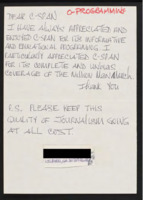 C-PROGRAMMING
DEAR C-SPAN
I HAVE ALWAYS APPRECIATED AND
ENJOYED C-SPAN FOR ITS INFORMATIVE
AND EDUCATIONAL PROGRAMMING. I
PARTICULARLY APPRECIATED C-SPAN
FOR ITS COMPLETE AND UNBIAS
COVERAGE OF THE MILLION MAN MARCH.
THANK YOU
P.S. PLEASE KEEP THIS
QUALITY OF JOURNALISM GOING
AT ALL COST.